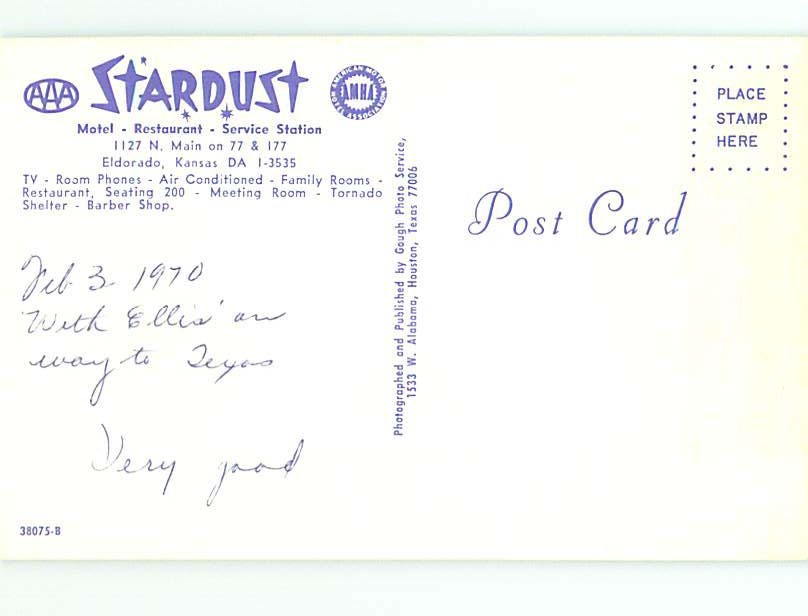 AAA
STARDUST
AMERICAN MOTOR HOTEL ASSOCIATION
AMHA
Motel - Restaurant - Service Station
1127 N. Main on 77 & 177
Eldorado, Kansas DA 1-3535
TV - Room Phones - Air Conditioned - Family Rooms -
Restaurant, Seating 200 - Meeting Room - Tornado
Shelter - Barber Shop.
Feb 3 1970
With Ellis' on
way to Texas
Very good
38075-B
Photographed and Published by Gough Photo Service,
1533 W. Alabama, Houston, Texas 77006
PLACE
STAMP
HERE
Post Card